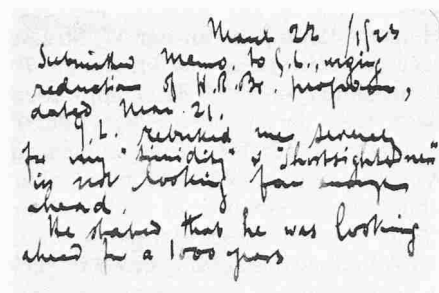 March 22/1923
Submitted Memo. to G.L., urging
reduction of H.R.Br. proposal,
dated Mar. 21.
G.L. rebuked me severely
for my "timidity" & "shortsightedness"
in not looking far enough
ahead.
He stated that he was looking
ahead for a 1000 years